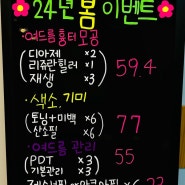 24년 봄 이벤트
·여드름 흉터 모공
(디아제 ×2
리쥬란힐러 ×1
재생 ×3) 59.4
·색소, 기미
(토닝+미백 ×6
산소필 ×6) 77
·여드름 관리
(PDT ×3
기본관리 ×3) 55